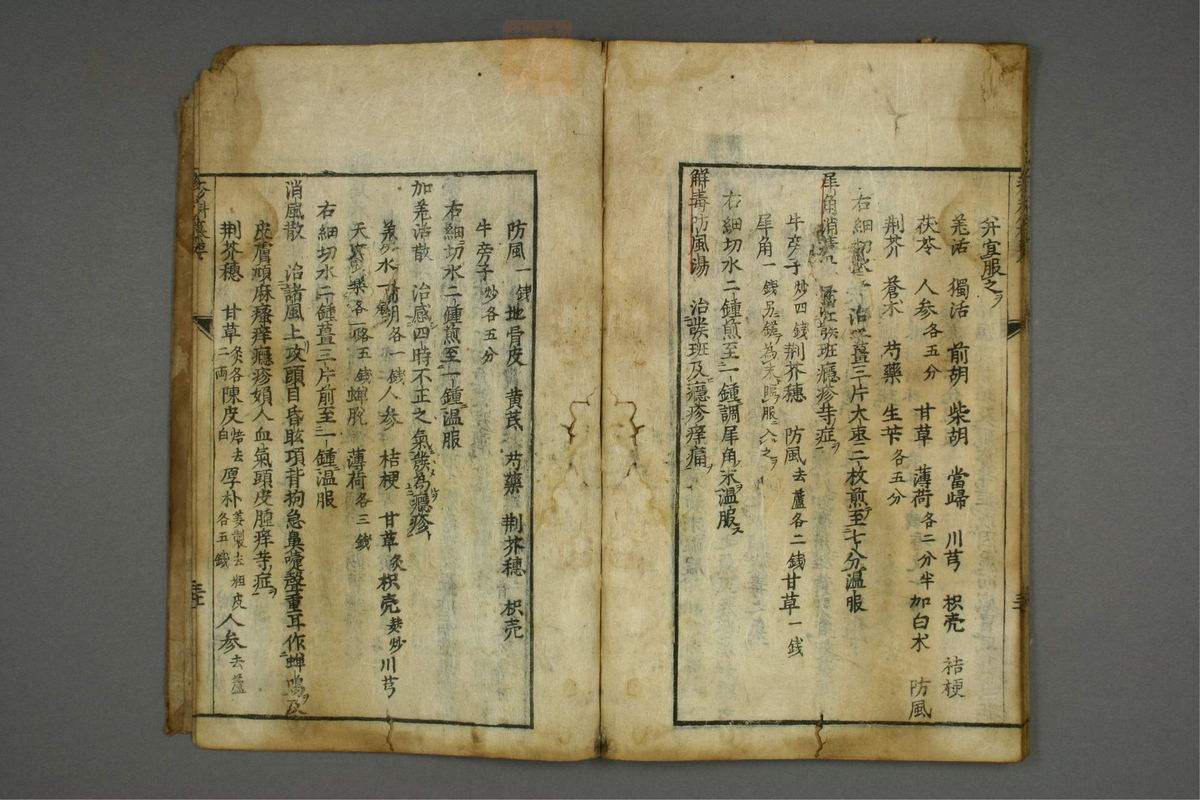 弁宜服之ヲ
羌活 獨活 前胡 柴胡 當歸 川芎 枳壳 桔梗
茯苓 人参各五分 甘草 薄荷各二分半 加白朮 防風
荆芥 蒼朮 芍藥 生芐各五分
右細切 薑三片大棗二枚煎至七分温服
犀角消 班癮疹等症
牛旁子炒四銭荆芥穗 防風去蘆各二銭甘草一銭
犀角一銭另 為末臨服入之
右細切水二鍾煎至一鍾調犀角末温服
解毒防風湯 治發班及癮疹痒痛
防風一銭地骨皮 黄芪 芍藥 荆芥穗 枳壳
牛旁子炒各五分
右細切水二鍾煎至一鍾温服
加羌活散 治感四時不正之氣發為癮疹
前胡各一銭人参 桔梗 甘草灸枳壳麩炒川芎
天麻 各五銭蝉脱 薄荷各三銭
右細切水二鍾薑三片煎至一鍾温服
消風散 治諸風上攻頭目昏眩項背拘急鼻嚏聲重耳作蝉鳴及
皮膚頑麻瘙痒癮疹婦人血氣頭皮腫痒等症
荆芥穗 甘草灸各二両陳皮焙去白厚朴姜製去粗皮各五銭人参去蘆